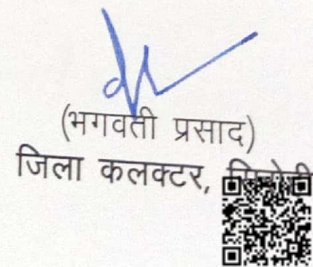 (भगवती प्रसाद)
जिला कलक्टर,